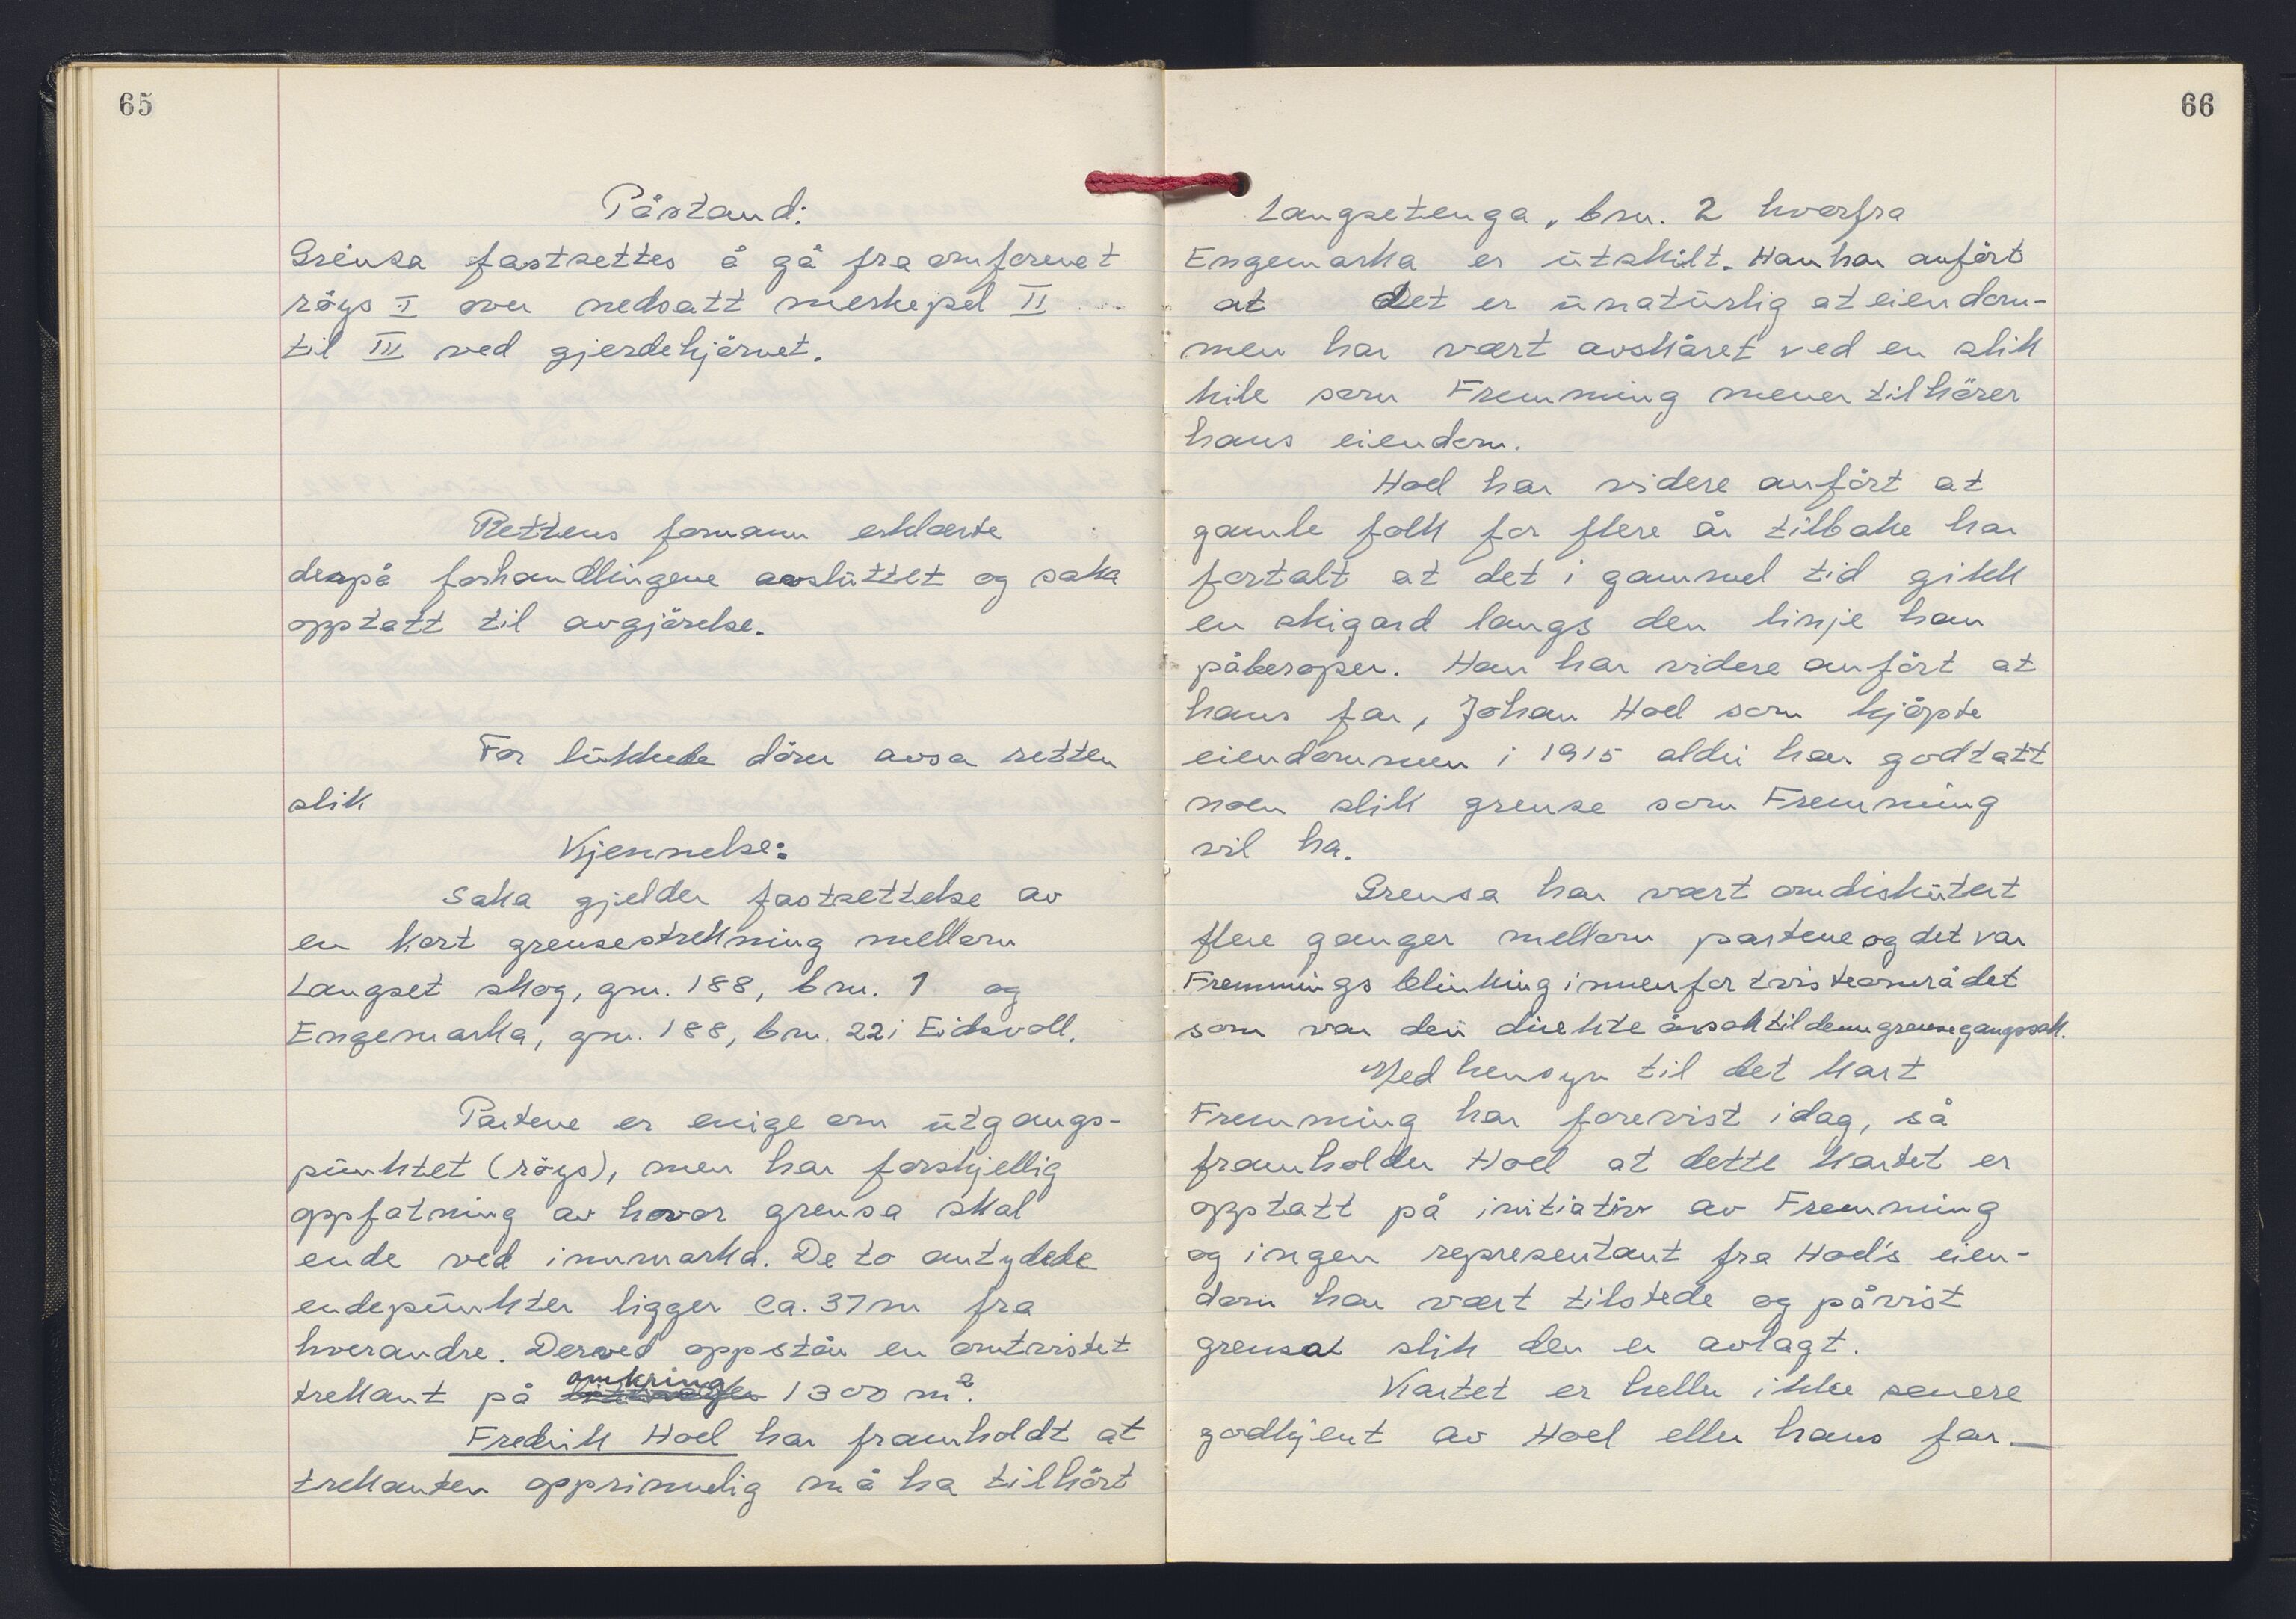 65
Påstand:
Grensa fastsettes å gå fra omforenet
röys I over nedsatt merkepel II
til III ved gjerdehjörnet.
Rettens formann erklærte
derpå forhandlingene avsluttet og saka
opptatt til avgjörelse.
For lukkede dörer avsa retten
slik
Kjennelse:
Saka gjelder fastsettelse av
en kort grensestrekning mellom
Langset skog, gnr. 188, bnr. 1 og
Engemarka, gnr. 188, bnr. 22 i Eidsvoll.
Partene er enige om utgangs-
punktet (röys), men har forskjellig
oppfatning av hvor grensa skal
ende ved innmarka. De to antydede
endepunkter ligger ca. 37 m fra
hverandre. Derved oppstår en omtvistet
trekant på omkring 1300 m².
Fredrik Hoel har framholdt at
trekanten opprinnelig må ha tilhört
66
Langsetenga, bnr. 2 hvorfra
Engemarka er utskilt. Han har anfört
at det er unaturlig at eiendom-
men har vært avskåret ved en slik
kile som Fremming mener tilhörer
hans eiendom.
Hoel har videre anfört at
gamle folk for flere år tilbake har
fortalt at det i gammel tid gikk
en skigard langs den linje han
påberoper. Han har videre anfört at
hans far, Johan Hoel som kjöpte
eiendommen i 1915 aldri har godtatt
noen slik grense som Fremming
vil ha.
Grensa har vært omdiskutert
flere ganger mellom partene og det var
Fremmings blinking innenfor tvisteområdet
som var den direkte årsak til denne grensegangssak.
Med hensyn til det kart
Fremming har forevist idag, så
framholder Hoel at dette kartet er
opptatt på initiativ av Fremming
og ingen representant fra Hoel's eien-
dom har vært tilstede og påvist
grensa slik den er avlagt.
Kartet er heller ikke senere
godkjent av Hoel eller hans far.